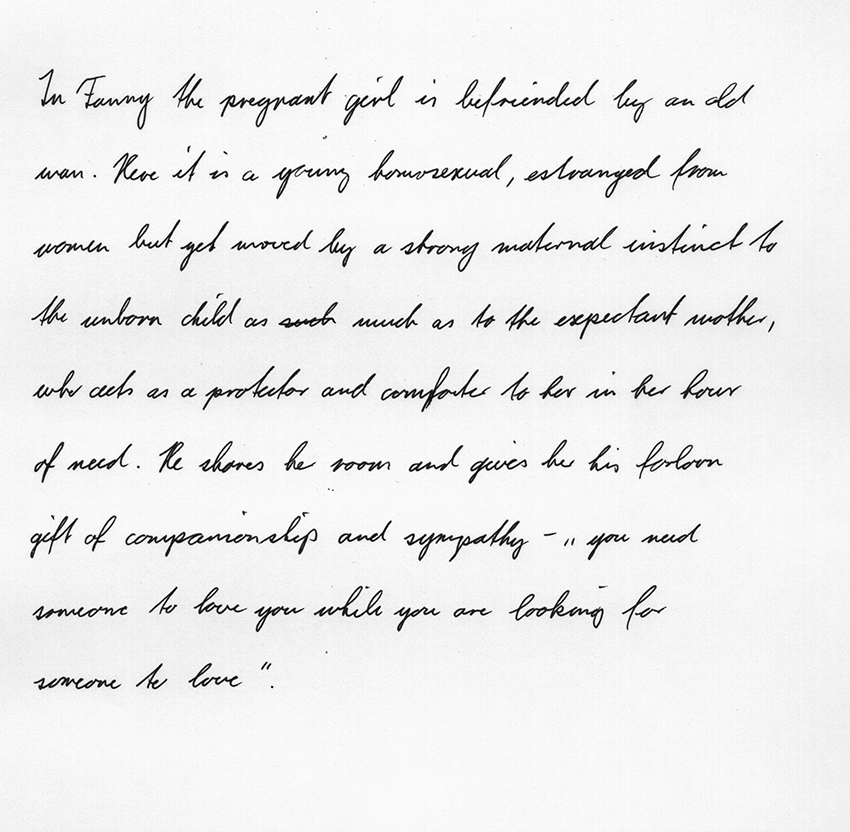 In Fanny the pregnant girl is befriended by an old
man. Here it is a young homosexual, estranged from
women but yet moved by a strong maternal instinct to
the unborn child as such much as to the expectant mother,
who acts as a protector and comforter to her in her hour
of need. He shares he room and gives her his forlorn
gift of companionship and sympathy – „ you need
someone to love you while you are looking for
someone to love “.